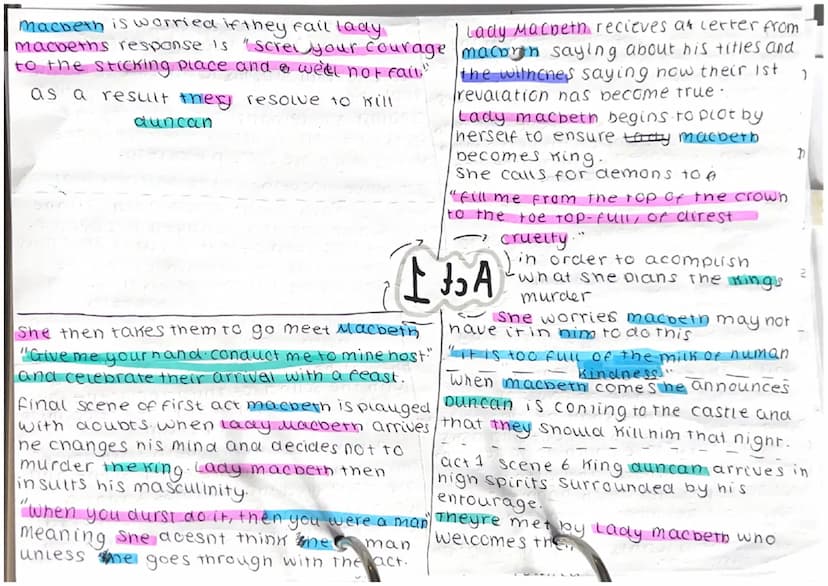 macbeth is worried if they fail lady
macbeths response is "screw your courage
to the sticking place and well not fail"
as a result they resolve to kill
duncan
She then takes them to go meet Macbeth
"Give me your hand. conduct me to mine host"
and celebrate their arrival with a feast.
final scene of first act macbeth is plauged
with doubts when lady Macbeth arrives
he changes his mind and decides not to
murder the king. Lady macbeth then
insults his masculinity.
"when you durst do it, then you were a man"
meaning she doesnt think man
unless he goes through with the act.
Act 1
Lady Macbeth recieves a letter from
macbeth saying about his titles and
the withches saying how their 1st
revalation has become true.
Lady macbeth begins to plot by
herself to ensure lady macbeth
becomes king.
She calls for demons to
"fill me from the top of the crown
to the toe top-full, of direst
cruelty."
in order to acomplish
what she plans the kings
murder
She worries macbeth may not
have it in him to do this
"it is too full of the milk of human
kindness"
When macbeth comes he announces
Duncan is coming to the castle and
that they should kill him that night.
act 1 scene 6 King duncan arrives in
high spirits surrounded by his
entourage.
Theyre met by Lady macbeth who
welcomes them